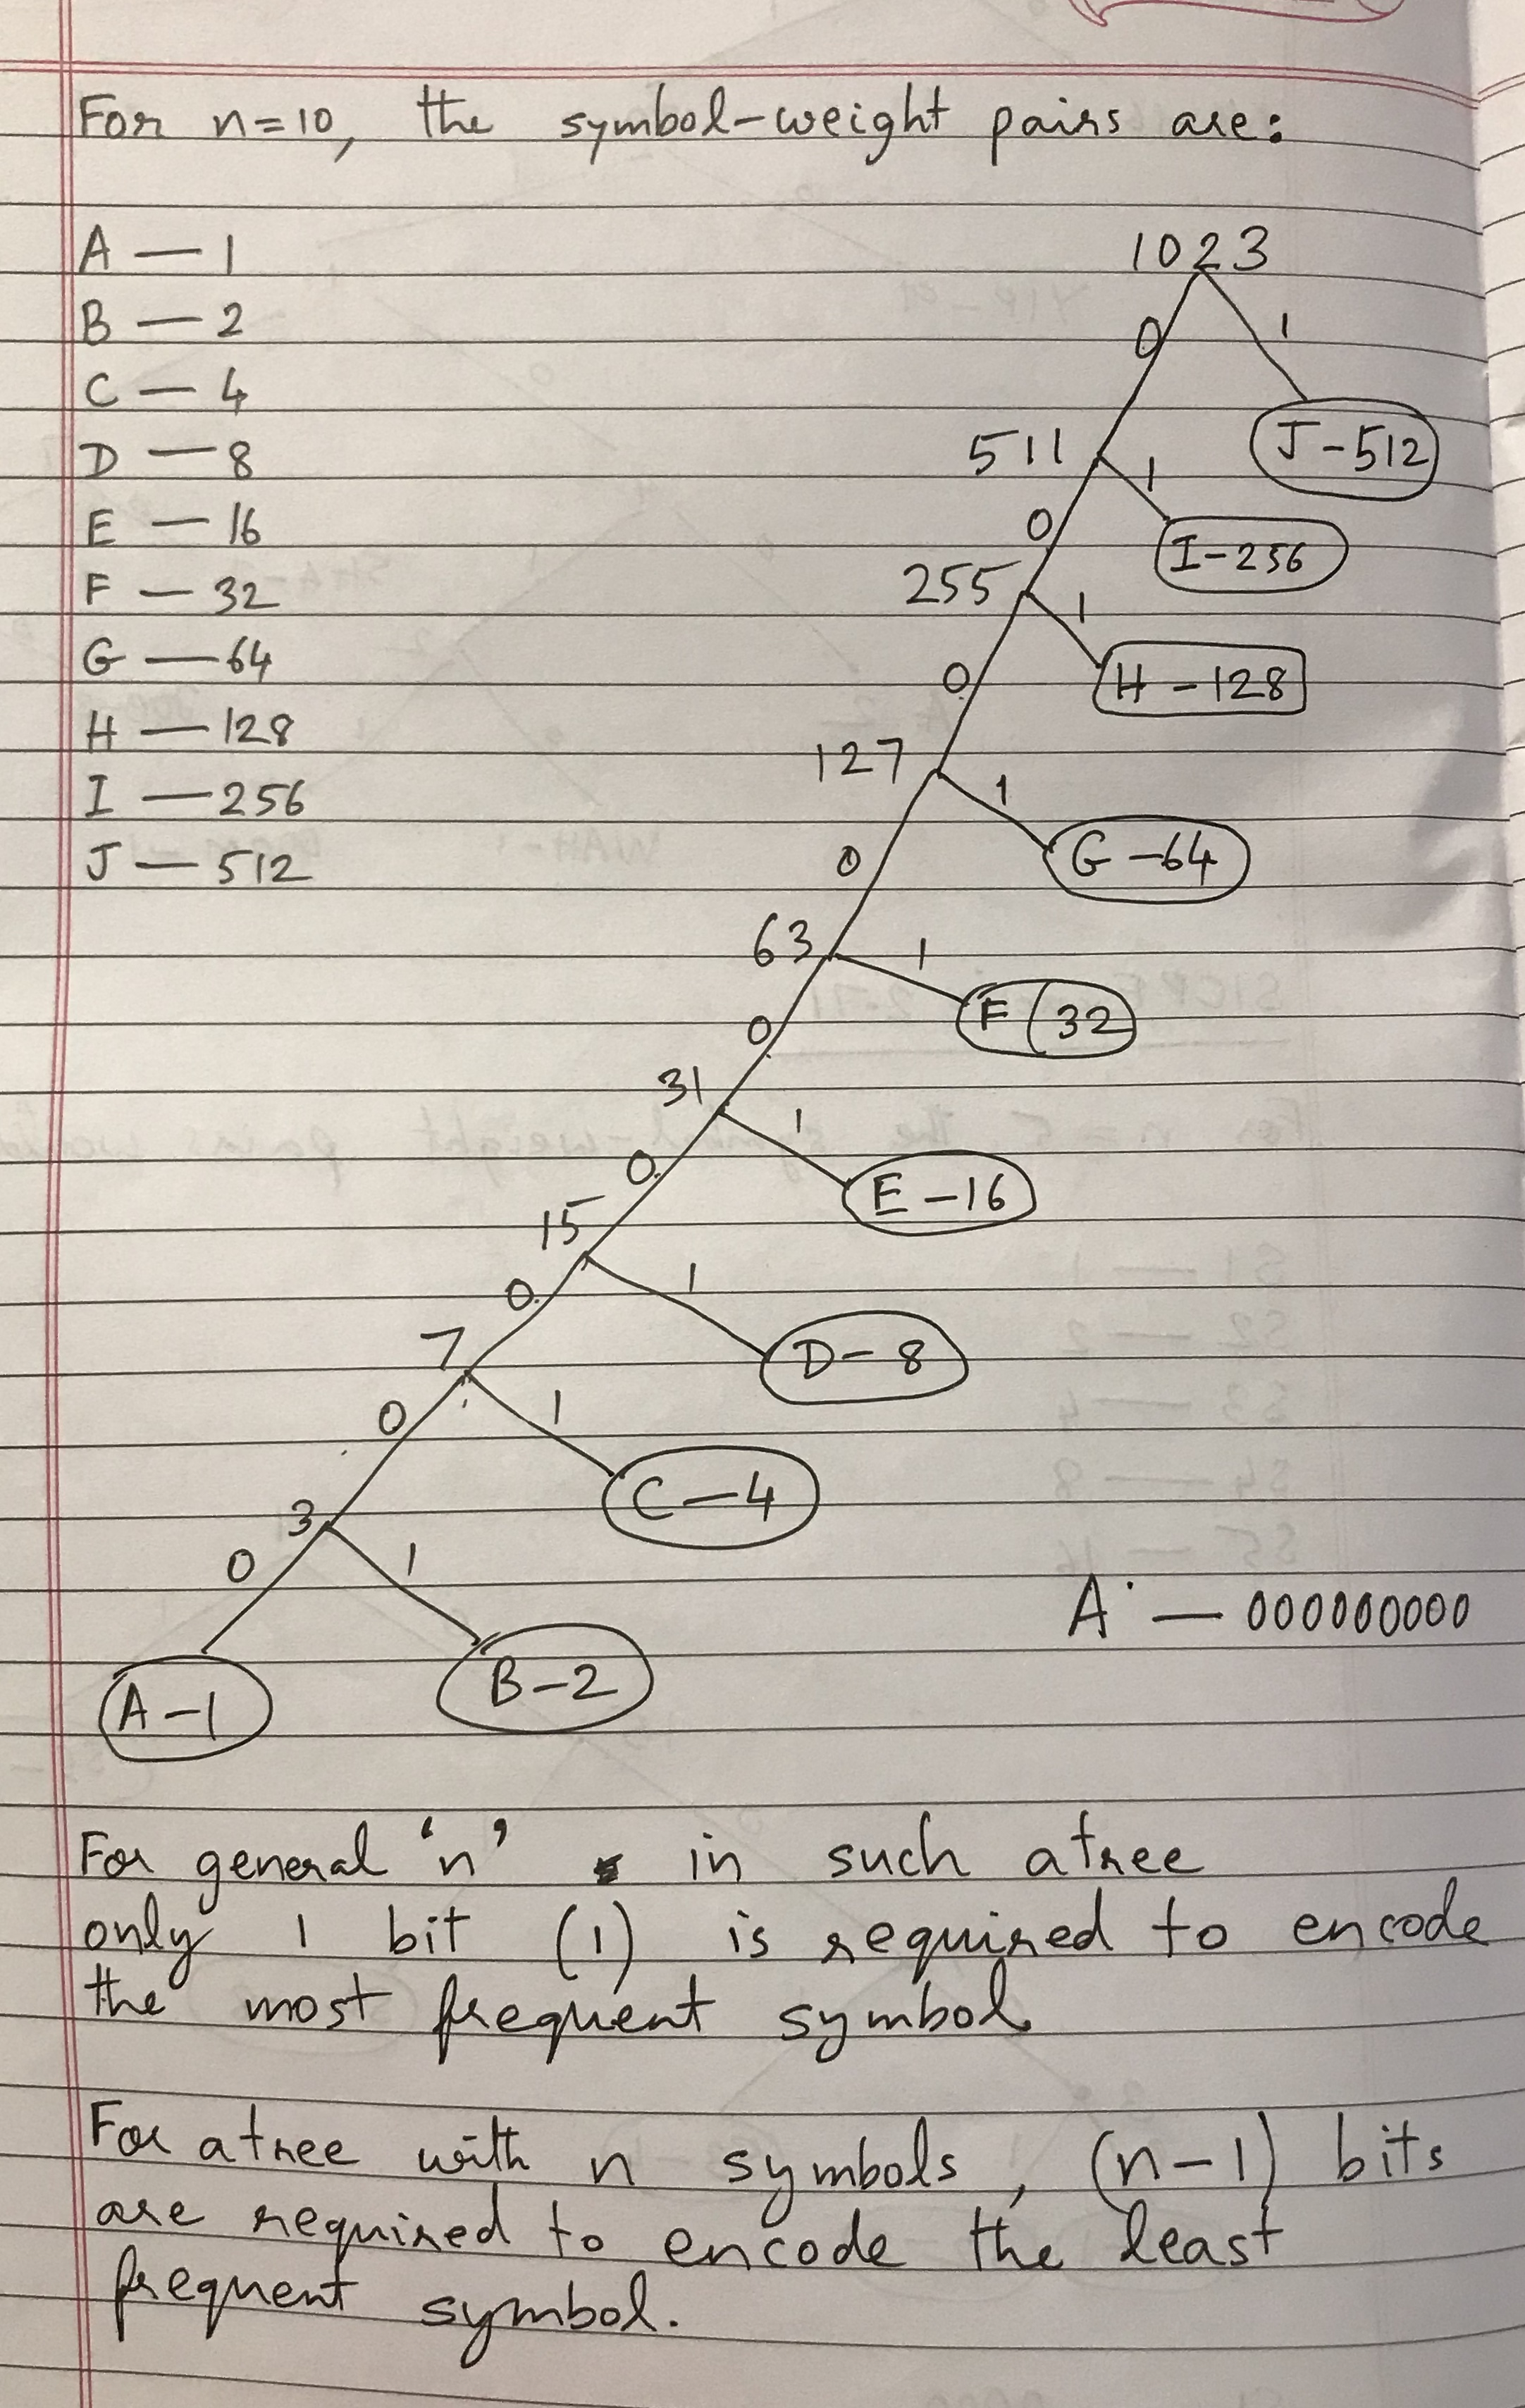 For n=10, the symbol-weight pairs are:
A — 1
B — 2
C — 4
D — 8
E — 16
F — 32
G — 64
H — 128
I — 256
J — 512
1023
0 1
511 J-512
0 1
255 I-256
0 1
127 H-128
0 1
63 G-64
0 1
31 F(32
0 1
15 E-16
0 1
7 D-8
0 1
3 C-4
0 1
A-1 B-2
A — 000000000
For general 'n' in such a tree
only 1 bit (1) is required to encode
the most frequent symbol
For a tree with n symbols, (n-1) bits
are required to encode the least
frequent symbol.